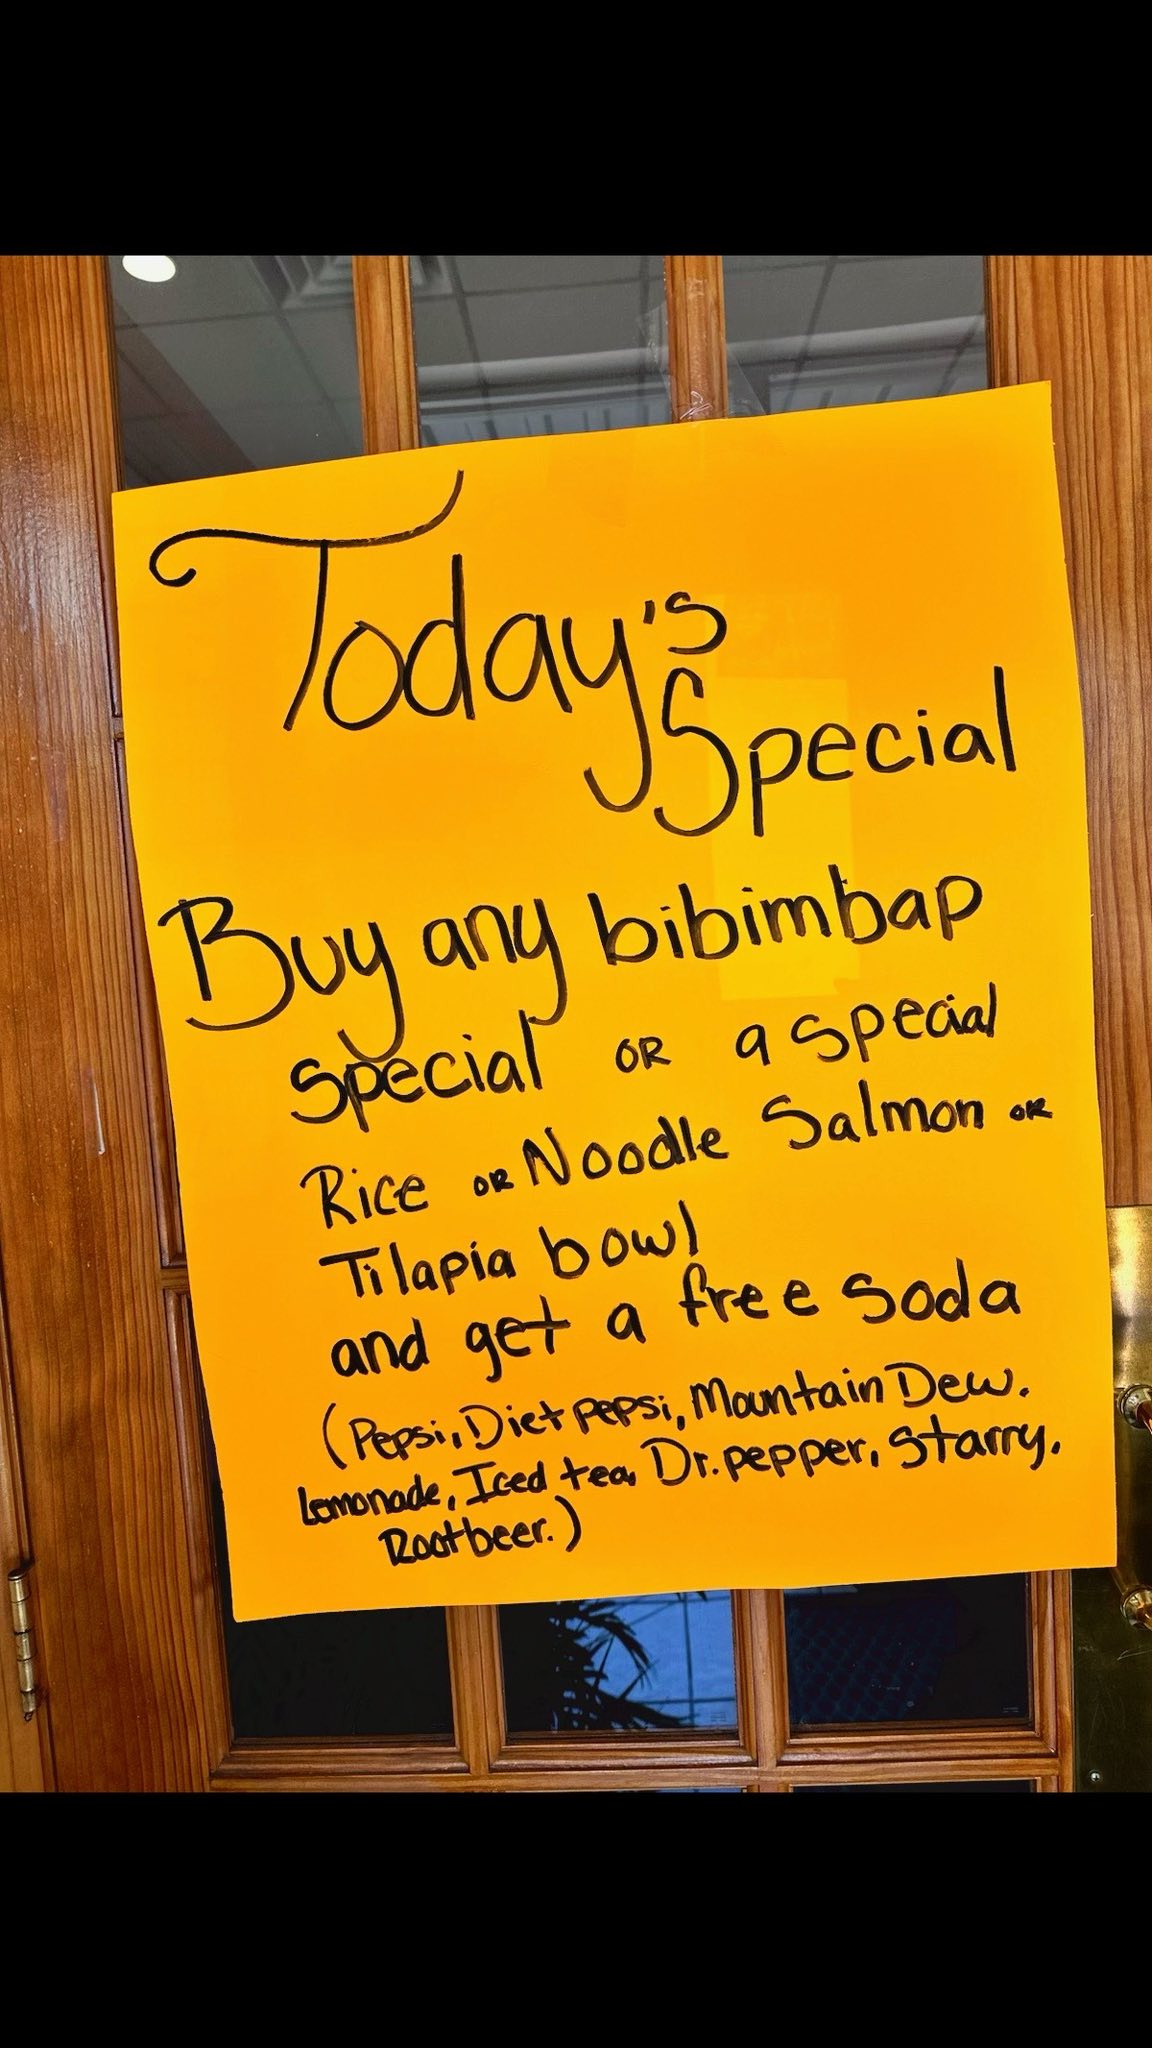 Today's
Special
Buy any bibimbap
special OR a special
Rice OR Noodle Salmon OR
Tilapia bowl
and get a free soda
(Pepsi, Diet pepsi, Mountain Dew.
Lemonade, Iced tea, Dr. pepper, Starry.
Root beer.)